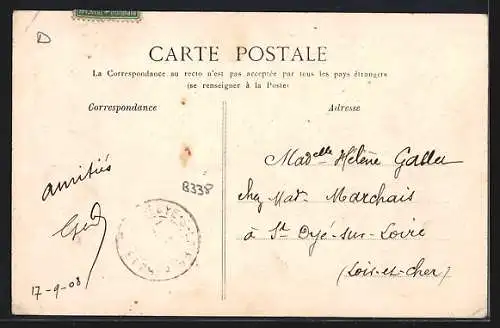 D
CARTE POSTALE
La Correspondance au recto n'est pas acceptée par tous les pays étrangers
(se renseigner à la Poste)
Correspondance
Adresse
amitiés
17-9-08
B338
Madelle Hélène
chez Mad. Marchais
à St Dyé-sur-Loire
(Loir-et-Cher)